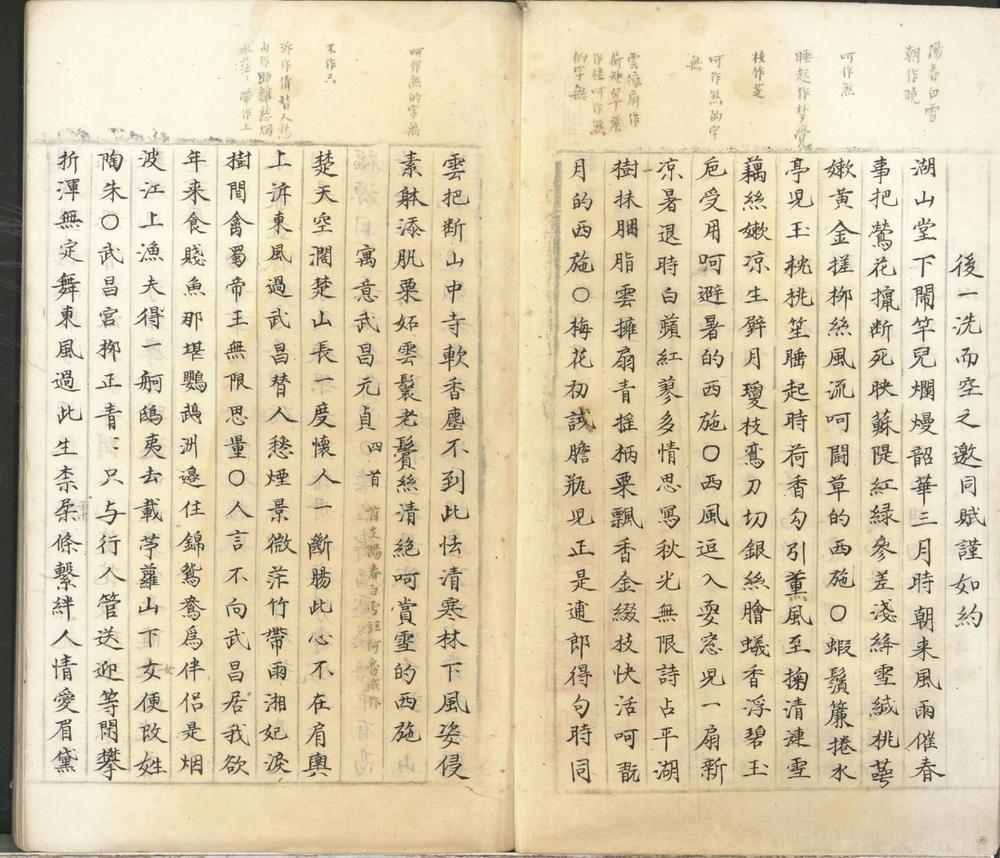 陽春白雪
朝作曉
呵作煞
睡起作梦覺
枝作芝
呵作煞的字
無
雲擁扇作
荷缺翠蓋
作桂呵作煞
的字無
後一洗而空之邀同賦謹如約
湖山堂下鬧竿兒爛熳韶華三月時朝来風雨催春
事把鶯花攛断死映蘇隄紅緑參差淺絳雪緘桃萼
嫩黄金搓柳絲風流呵鬪草的西施〇蝦鬚簾捲水
亭見玉枕桃笙睡起時荷香勾引薫風至掬清漣雪
藕絲嫩凉生髀月瓊枝鸞刀切銀絲膾蟻香浮碧玉
巵受用呵避暑的西施〇西風逗入耍窓児一扇新
凉暑退時白蘋紅蓼多情思寫秋光無限詩占平湖
樹抹胭脂雲擁扇青揺柄粟飄香金綴枝快活呵翫
月的西施〇梅花初試膽瓶児正是逋郎得句時同
呵作煞的字無
不作只
泝作倩替人愁
雲把断山中寺軟香塵不到此怯清寒林下風姿侵
素躰添肌粟妬雲鬟老鬢絲清絶呵賞雪的西施
寓意武昌元貞 四首
楚天空濶楚山長一度懷人一断腸此心不在肩輿
上泝東風過武昌替人愁煙景微茫竹帶雨湘妃淚
樹間禽蜀帝王無限思量〇人言不向武昌居我欲
年来食賤魚那堪鸚鵡洲邉住錦鴛鴦爲伴侶是烟
波江上漁夫得一舸鴟夷去載苧蘿山下女便改姓
陶朱〇武昌宮柳正青青只与行人管送迎等閒攀
折渾無定舞東風過此生柰柔條繫絆人情愛眉黛